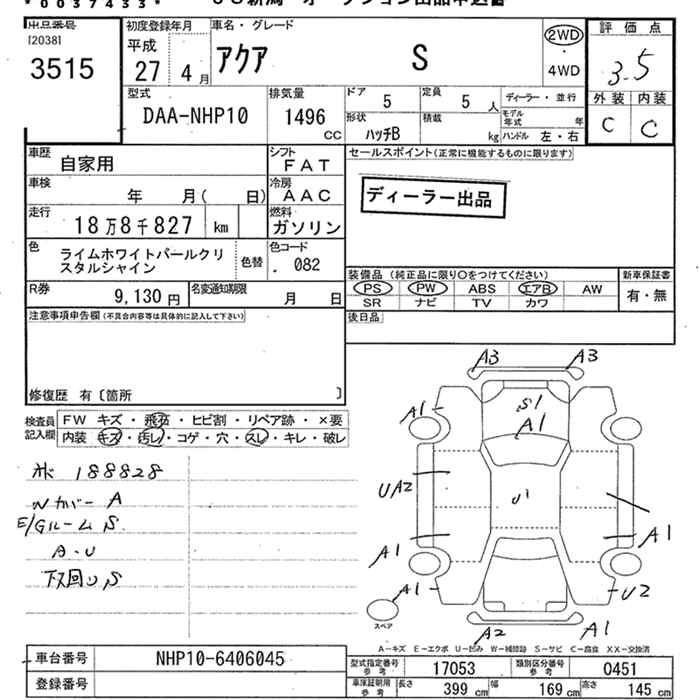 *0037433*
出品番号
[20381
3515
初度登録年月
平成
27 4月
車名・グレード
アクア S
2WD
・
4WD
評価点
3.5
外装 内装
C C
型式
DAA-NHP10
排気量
1496
CC
ドア 5
定員 5人
形状
ハッチB
積載
kg
ディーラー・並行
モデル年式 年
ハンドル 左・右
車歴
自家用
シフト
FAT
車検
年 月( 日)
冷房
AAC
走行
18万8千827 km
燃料
ガソリン
色
ライムホワイトパールクリ
スタルシャイン
色替
色コード
082
R券
9,130円
名変通知期限
月 日
セールスポイント(正常に機能するものに限ります)
ディーラー出品
装備品(純正品に限り○をつけてください)
PS PW ABS エアB AW
SR ナビ TV カワ
新車保証書
有・無
後日品
注意事項申告欄(不具合内容等は具体的に記入して下さい)
修復歴 有〔箇所 〕
検査員
記入欄
FW キズ・飛石・ヒビ割・リペア跡・×要
内装 キズ・汚レ・コゲ・穴・スレ・キレ・破レ
188828
Nカバー A
E/Gルーム S
A・U
下回り S
A3 A3
A1
S1
A1
A1
UA2
U1
A1
A1
A1
U2
スペア
A2
A1
A-キズ E-エクボ U-凹み W-補修跡 S-サビ C-腐食 XX-交換済
車台番号
NHP10-6406045
登録番号
型式指定番号
参考
17053
類別区分番号
参考
0451
車庫証明用
参考
長さ 399 cm
幅 169 cm
高さ 145 cm